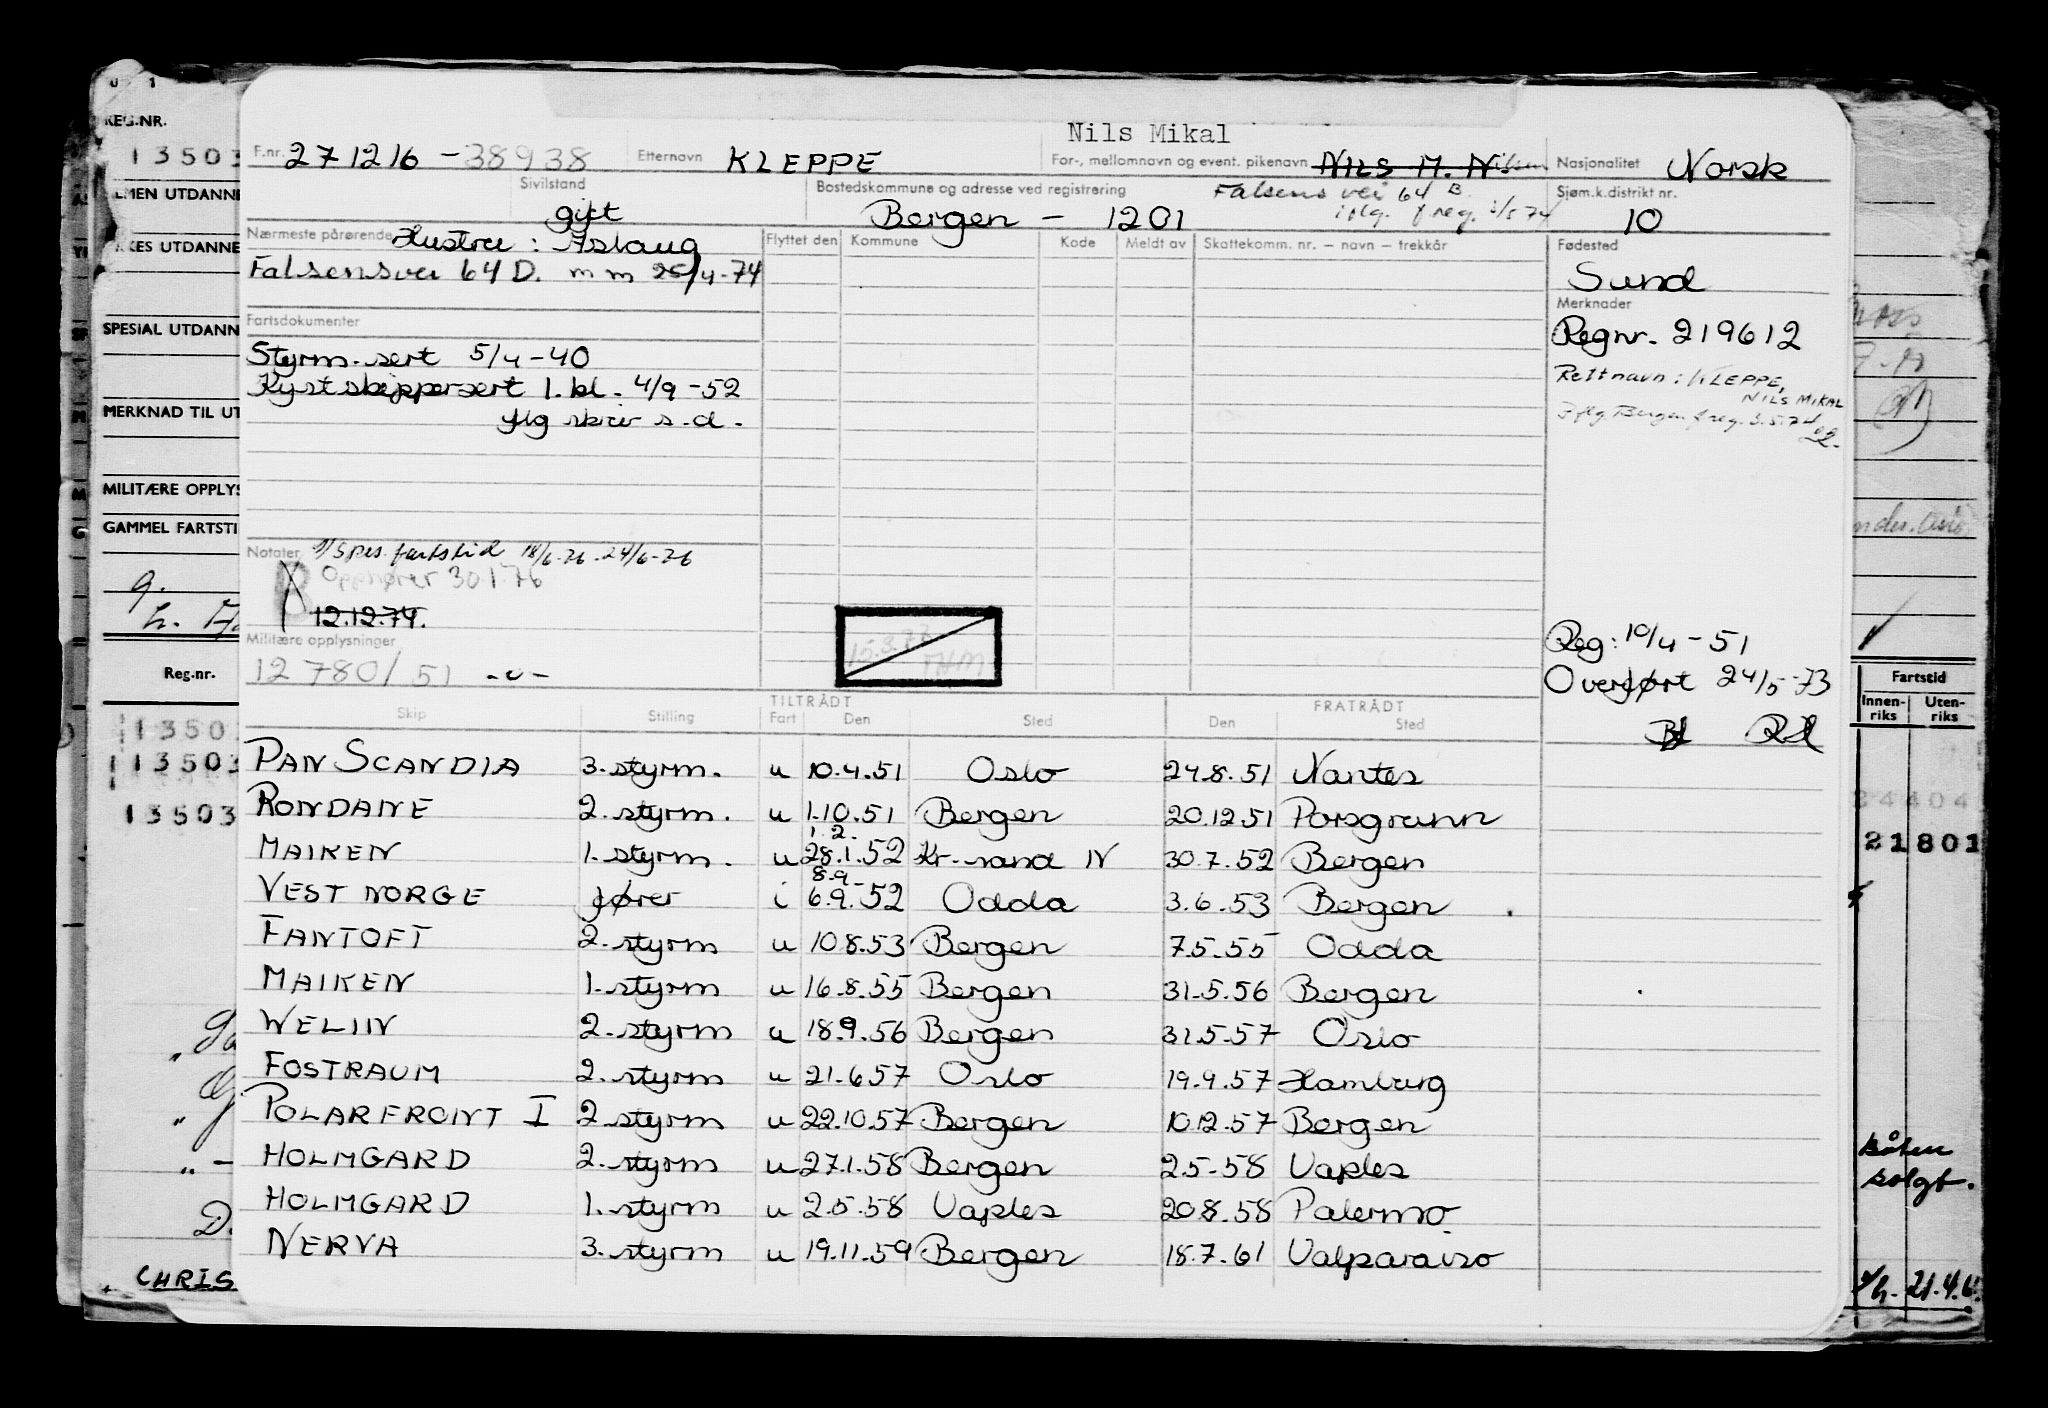 Nils Mikal
F.nr. 271216 - 38938 Etternavn KLEPPE For-, mellomnavn og event. pikenavn NILS M. Nilsen Nasjonalitet Norsk
Sivilstand gift Bostedskommune og adresse ved registrering Bergen - 1201 Falsens vei 64 B Sjøm.k.distrikt nr. 10
iflg. freg. 3/5 74
Nærmeste pårørende Hustru: Aslaug
Falsensvei 64 D. m m 25/4-74
Flyttet den Kommune Kode Meldt av Skattekomm. nr. – navn – trekkår
Fødested
Sund
Merknader
Regnr. 219612
Rettnavn: KLEPPE,
NILS MIKAL
Iflg. Bergen freg. 3.5.74
Fartsdokumenter
Styrm. sert 5/4-40
Kystskippersert 1. kl. 4/9-52
iflg skriv s.d.
Notater 1/ Spes. fartstid 18/6-76 - 24/6-76
B Opphører 30.1.76
12.12.74.
Militære opplysninger
12780/51 -o-
15.3.77
Reg: 10/4-51
Overført 24/5-73
TILTRÅDT FRATRÅDT
Skip Stilling Fart Den Sted Den Sted
PAN SCANDIA 3. styrm. u 10.4.51 Oslo 24.8.51 Nantes
RONDANE 2. styrm. u 1.10.51 Bergen 20.12.51 Porsgrunn
1.2.
MAIKEN 1. styrm. u 28.1.52 Kr.sand N 30.7.52 Bergen
8.9.
VEST NORGE fører i 6.9.52 Odda 3.6.53 Bergen
FANTOFT 2. styrm u 10.8.53 Bergen 7.5.55 Odda
MAIKEN 1. styrm u 16.8.55 Bergen 31.5.56 Bergen
WELIIN 2. styrm u 18.9.56 Bergen 31.5.57 Oslo
FOSTRAUM 2. styrm u 21.6.57 Oslo 19.9.57 Hamburg
POLARFRONT I 2 styrm u 22.10.57 Bergen 10.12.57 Bergen
HOLMGARD 2. styrm u 27.1.58 Bergen 2.5.58 Naples
HOLMGARD 1. styrm u 2.5.58 Naples 20.8.58 Palermo
NERVA 3. styrm u 19.11.59 Bergen 18.7.61 Valparaiso
REG.NR.
13503
SPESIAL UTDANN
MERKNAD TIL UT
MILITÆRE OPPLYS
GAMMEL FARTSTI
Reg.nr.
13503
13503
13503
CHRIS
Fartstid
Innen-riks Uten-riks
34404
21801
Båten
solgt.
21.4.6